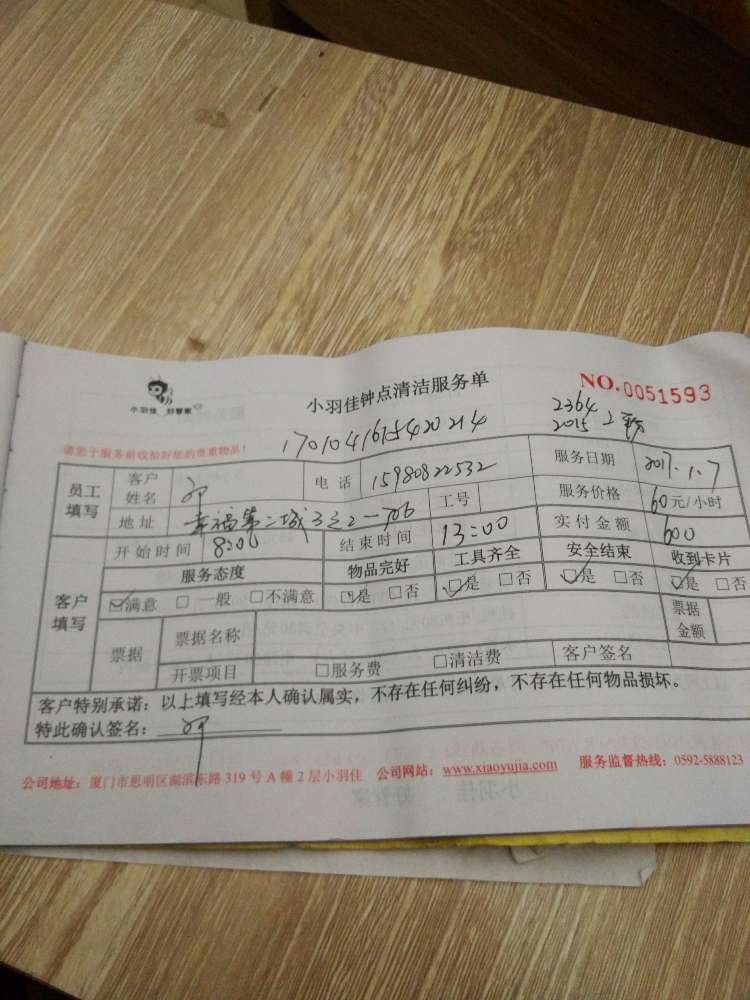 小羽佳 好管家
小羽佳钟点清洁服务单
NO.0051593
1701041615420214
2364
2015 2
请您于服务前收拾好您的贵重物品!
员工填写 客户姓名 电话 15980822532 服务日期 2017.1.7
地址 幸福第二城3之2-706 工号 服务价格 60元/小时
客户填写 开始时间 8:00 结束时间 13:00 实付金额 600
服务态度 物品完好 工具齐全 安全结束 收到卡片
☑满意 □一般 □不满意 ☑是 □否 ☑是 □否 ☑是 □否 ☑是 □否
票据 票据名称 票据金额
开票项目 □服务费 □清洁费 客户签名
客户特别承诺:以上填写经本人确认属实,不存在任何纠纷,不存在任何物品损坏。
特此确认签名:
公司地址:厦门市思明区湖滨东路 319 号 A 幢 2 层小羽佳 公司网站:www.xiaoyujia.com 服务监督热线:0592-5888123